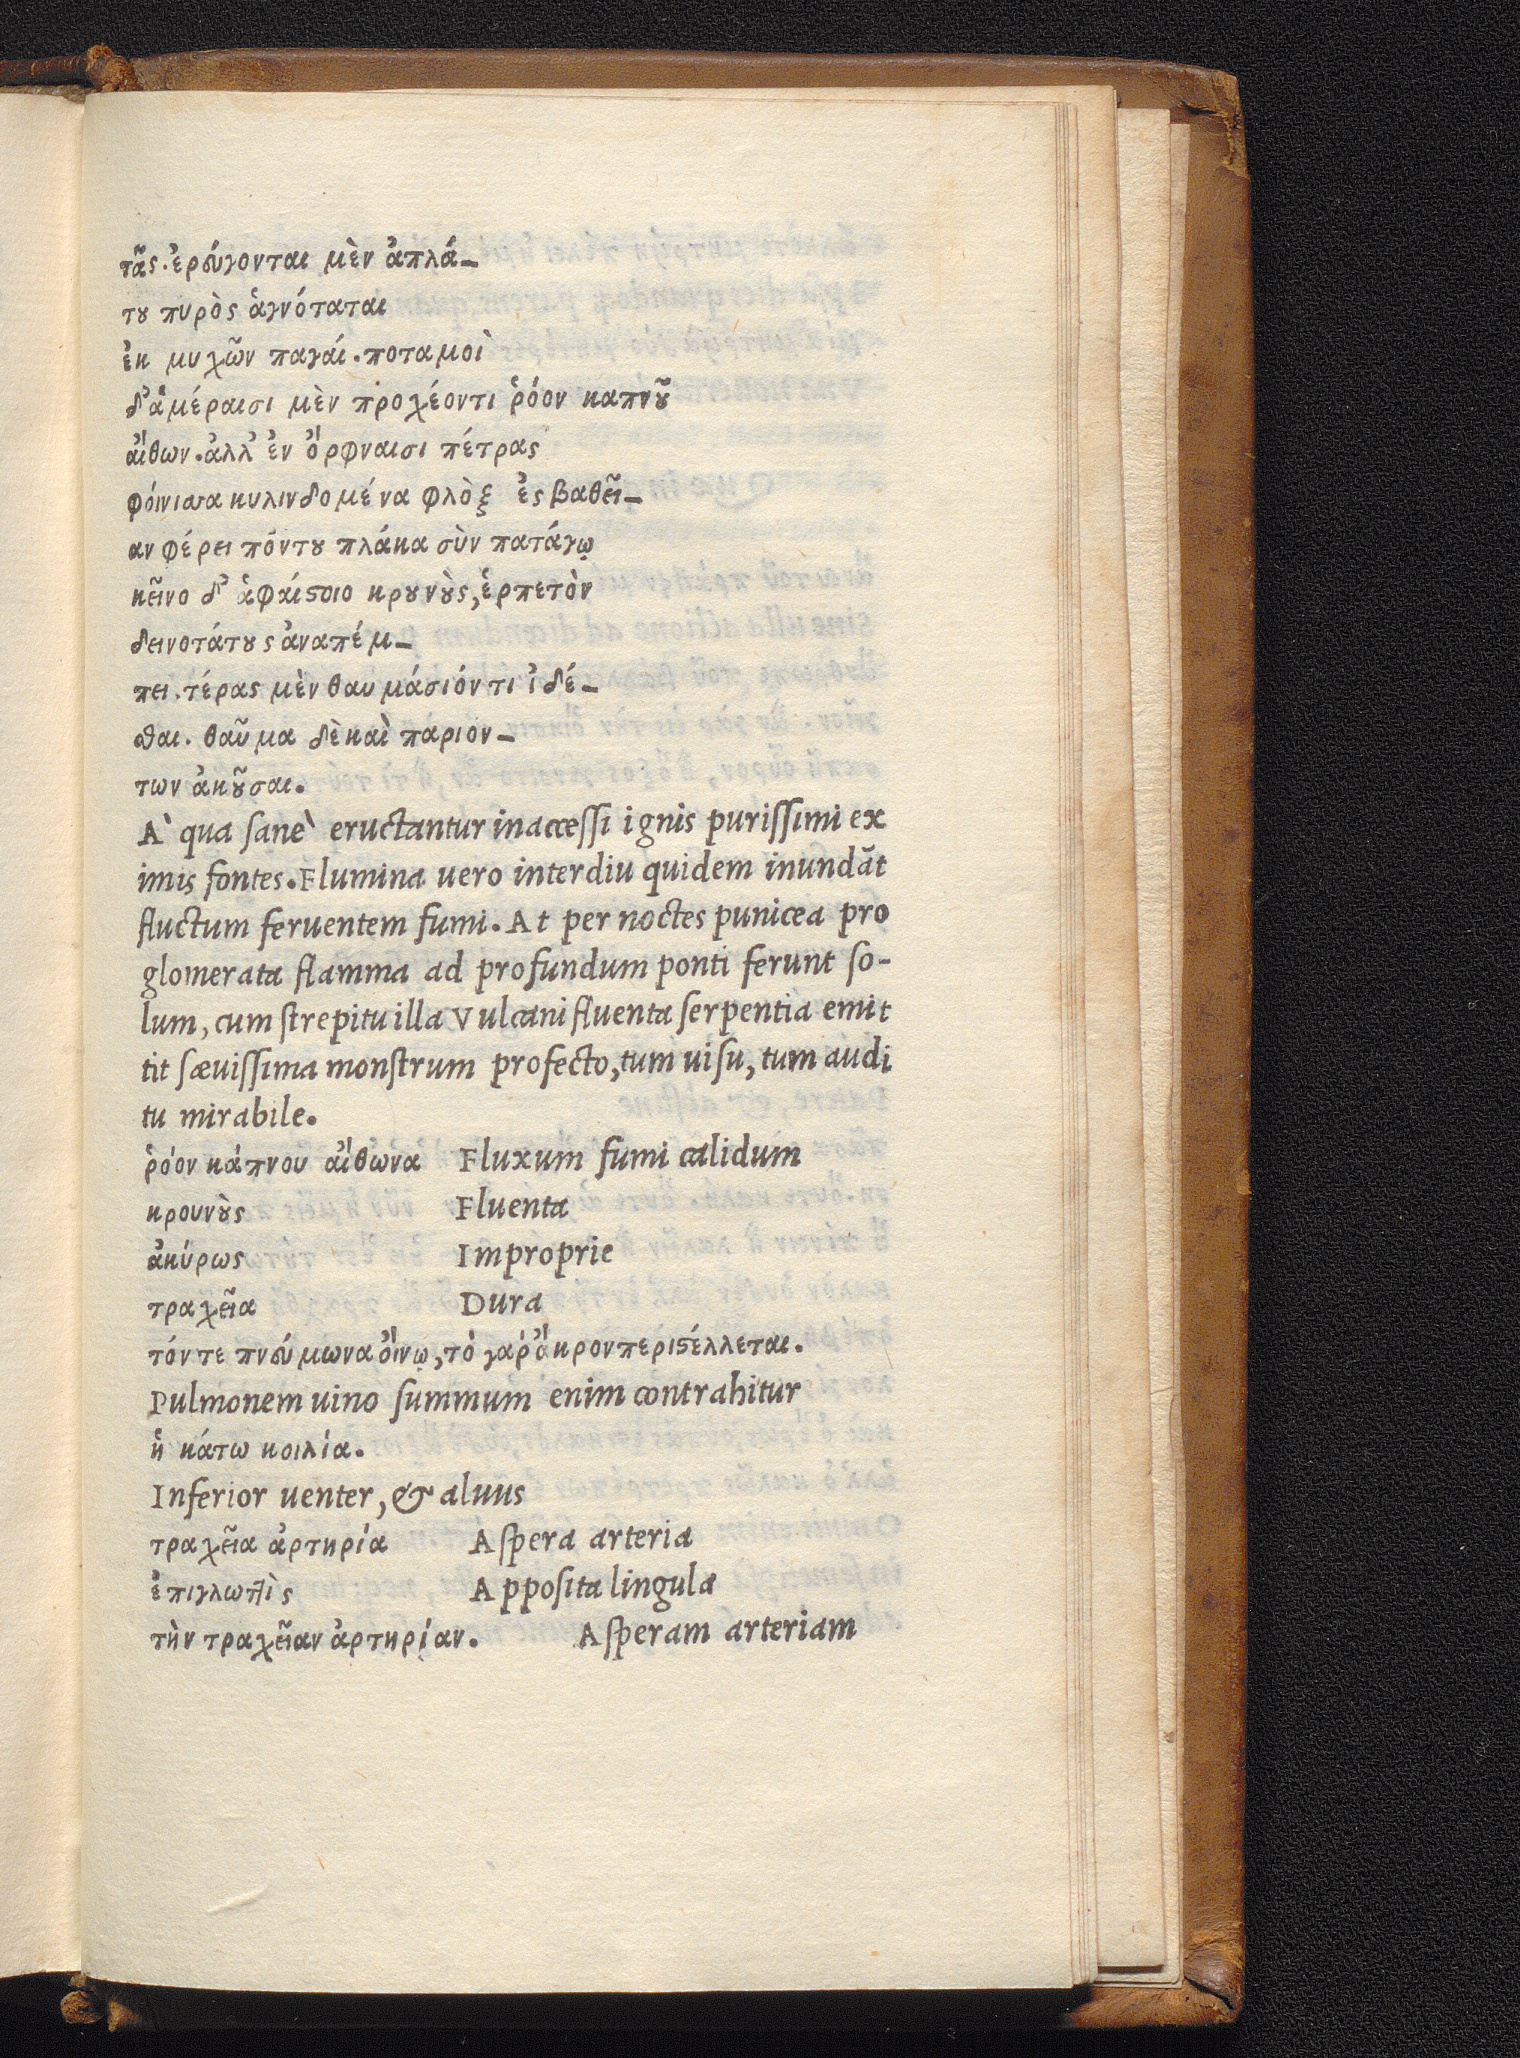 τᾶς. ἐρεύγονται μὲν ἀπλά-
του πυρὸς ἁγνόταται
ἐκ μυχῶν παγαί. ποταμοὶ
δ' ἁμέραισι μὲν προχέοντι ῥόον καπνοῦ
αἴθων. ἀλλ' ἐν ὄρφναισι πέτρας
φοίνισσα κυλινδομένα φλὸξ ἐς βαθεῖ-
αν φέρει πόντου πλάκα σὺν πατάγῳ
κεῖνο δ' ἁφαίστοιο κρουνοὺς, ἑρπετὸν
δεινοτάτους ἀναπέμ-
πει. τέρας μὲν θαυμάσιόν τι ἰδέ-
σθαι. θαῦμα δὲ καὶ παριόν-
των ἀκοῦσαι.
A` qua sane` eructantur inaccessi ignis purissimi ex
imis fontes. Flumina uero interdiu quidem inundāt
fluctum feruentem fumi. At per noctes punicea pro
glomerata flamma ad profundum ponti ferunt so-
lum, cum strepitu illa Vulcani fluenta serpentia emit
tit sæuissima monstrum profecto, tum uisu, tum audi
tu mirabile.
ῥόον κάπνου αἴθωνα Fluxum fumi calidum
κρουνοὺς Fluenta
ἀκύρως Improprie
τραχεῖα Dura
τόν τε πνεύμωνα οἴνῳ, τὸ γὰρ ἄκρον περιστέλλεται.
Pulmonem uino summum enim contrahitur
ἡ κάτω κοιλία.
Inferior uenter, & aluus
τραχεῖα ἀρτηρία Aspera arteria
ἐπιγλωττὶς Apposita lingulæ
τὴν τραχεῖαν ἀρτηρίαν. Asperam arteriam